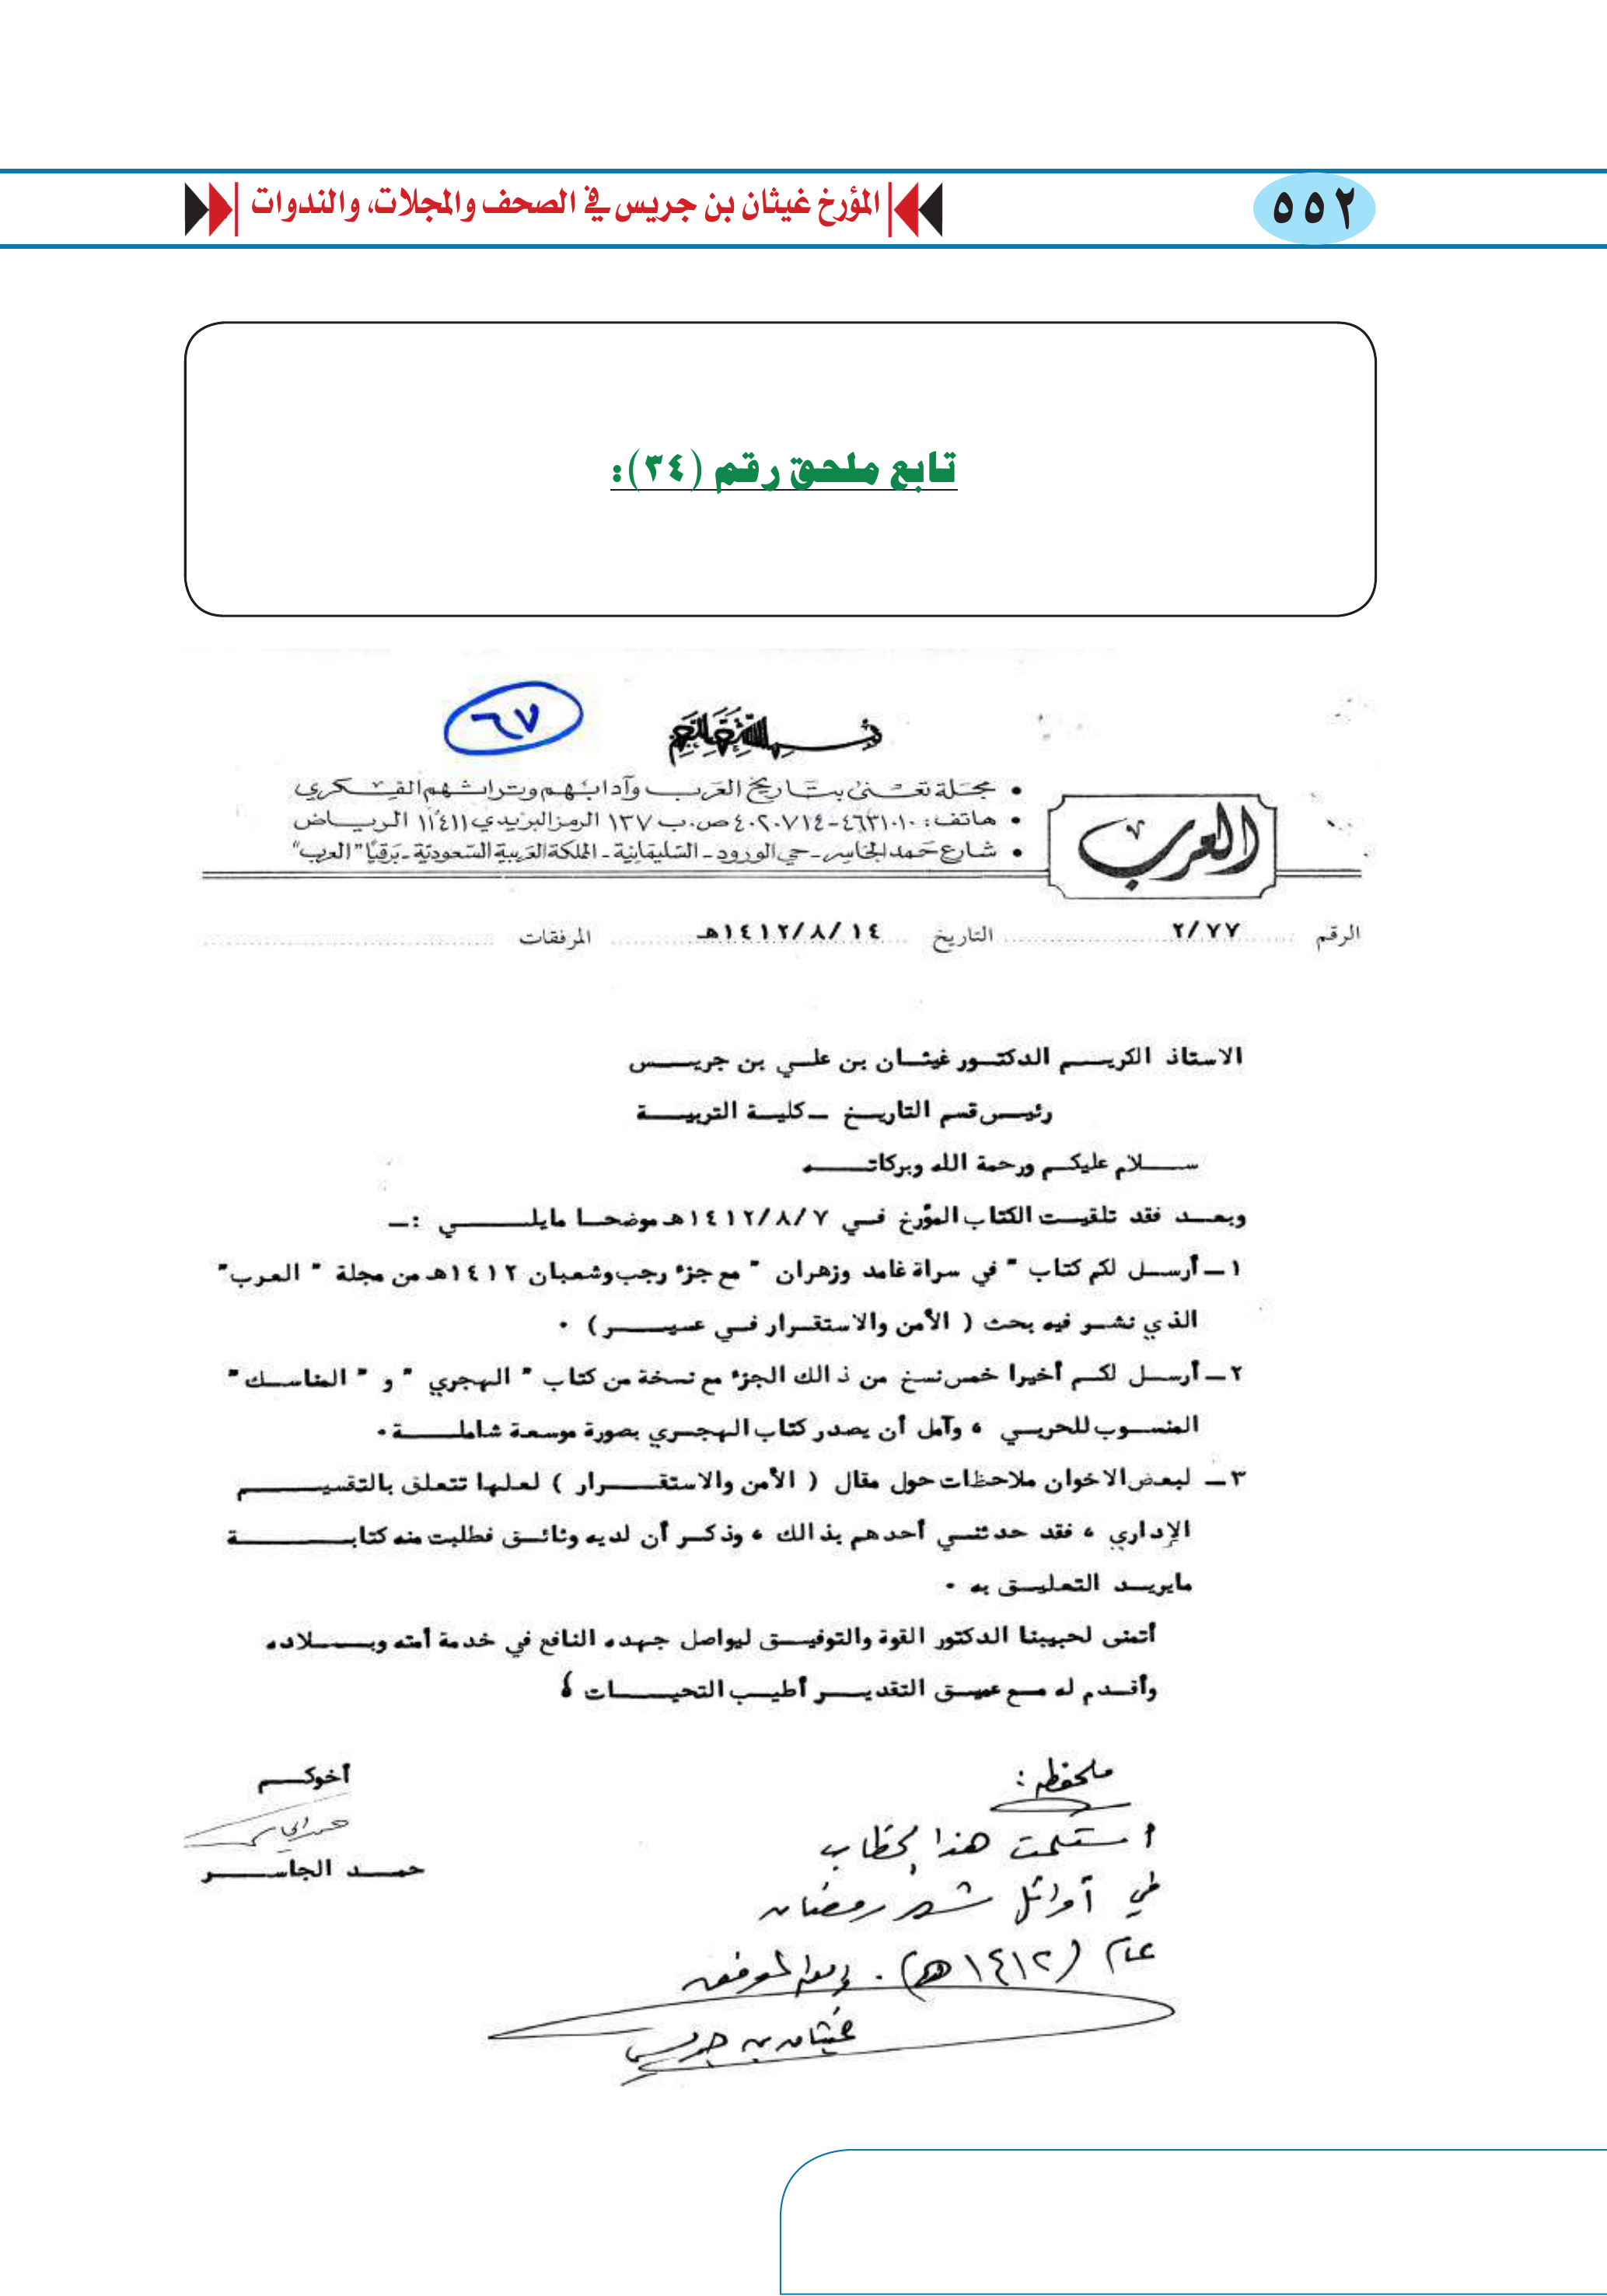 ٥٥٢
المؤرخ غيثان بن جريس في الصحف والمجلات، والندوات
تابع ملحق رقم (٣٤):
٦٧
بسم الله الرحمن الرحيم
العرب
• مجلة تعنى بتاريخ العرب وآدابهم وتراثهم الفكري
• هاتف: ٤٦٣١٠١٠-٤٠٢٠٧١٤ ص.ب ١٣٧ الرمز البريدي ١١٤١١ الرياض
• شارع حمد الجاسر - حي الورود - السليمانية - المملكة العربية السعودية - برقيًا "العرب"
الرقم ٢/٧٧ التاريخ ١٤١٢/٨/١٤هـ المرفقات
الاستاذ الكريم الدكتور غيثان بن علي بن جريس
رئيس قسم التاريخ ـ كلية التربية
سلام عليكم ورحمة الله وبركاته
وبعد فقد تلقيت الكتاب المؤرخ في ١٤١٢/٨/٧هـ موضحا مايلي :ـ
١ـ أرسل لكم كتاب " في سراة غامد وزهران " مع جزء رجب وشعبان ١٤١٢هـ من مجلة " العرب"
الذي نشر فيه بحث ( الأمن والاستقرار في عسير ) ٠
٢ـ أرسل لكم أخيرا خمس نسخ من ذالك الجزء مع نسخة من كتاب " الهجري " و " المناسك"
المنسوب للحربي ، وآمل أن يصدر كتاب الهجري بصورة موسعة شاملة ٠
٣ـ لبعض الاخوان ملاحظات حول مقال ( الأمن والاستقرار ) لعلها تتعلق بالتقسيم
الإداري ، فقد حدثني أحدهم بذالك ، وذكر أن لديه وثائق فطلبت منه كتابة
مايريد التعليق به ٠
أتمنى لحبيبنا الدكتور القوة والتوفيق ليواصل جهده النافع في خدمة أمته وبلاده
وأقدم له مع عميق التقدير أطيب التحيات ،
أخوكم
حمد الجاسر
حمد الجاسر
ملحظه :
أستلمت هذا الخطاب
في أوائل شهر رمضان
عام (١٤١٢هـ). والله الموفق
غيثان بن جريس